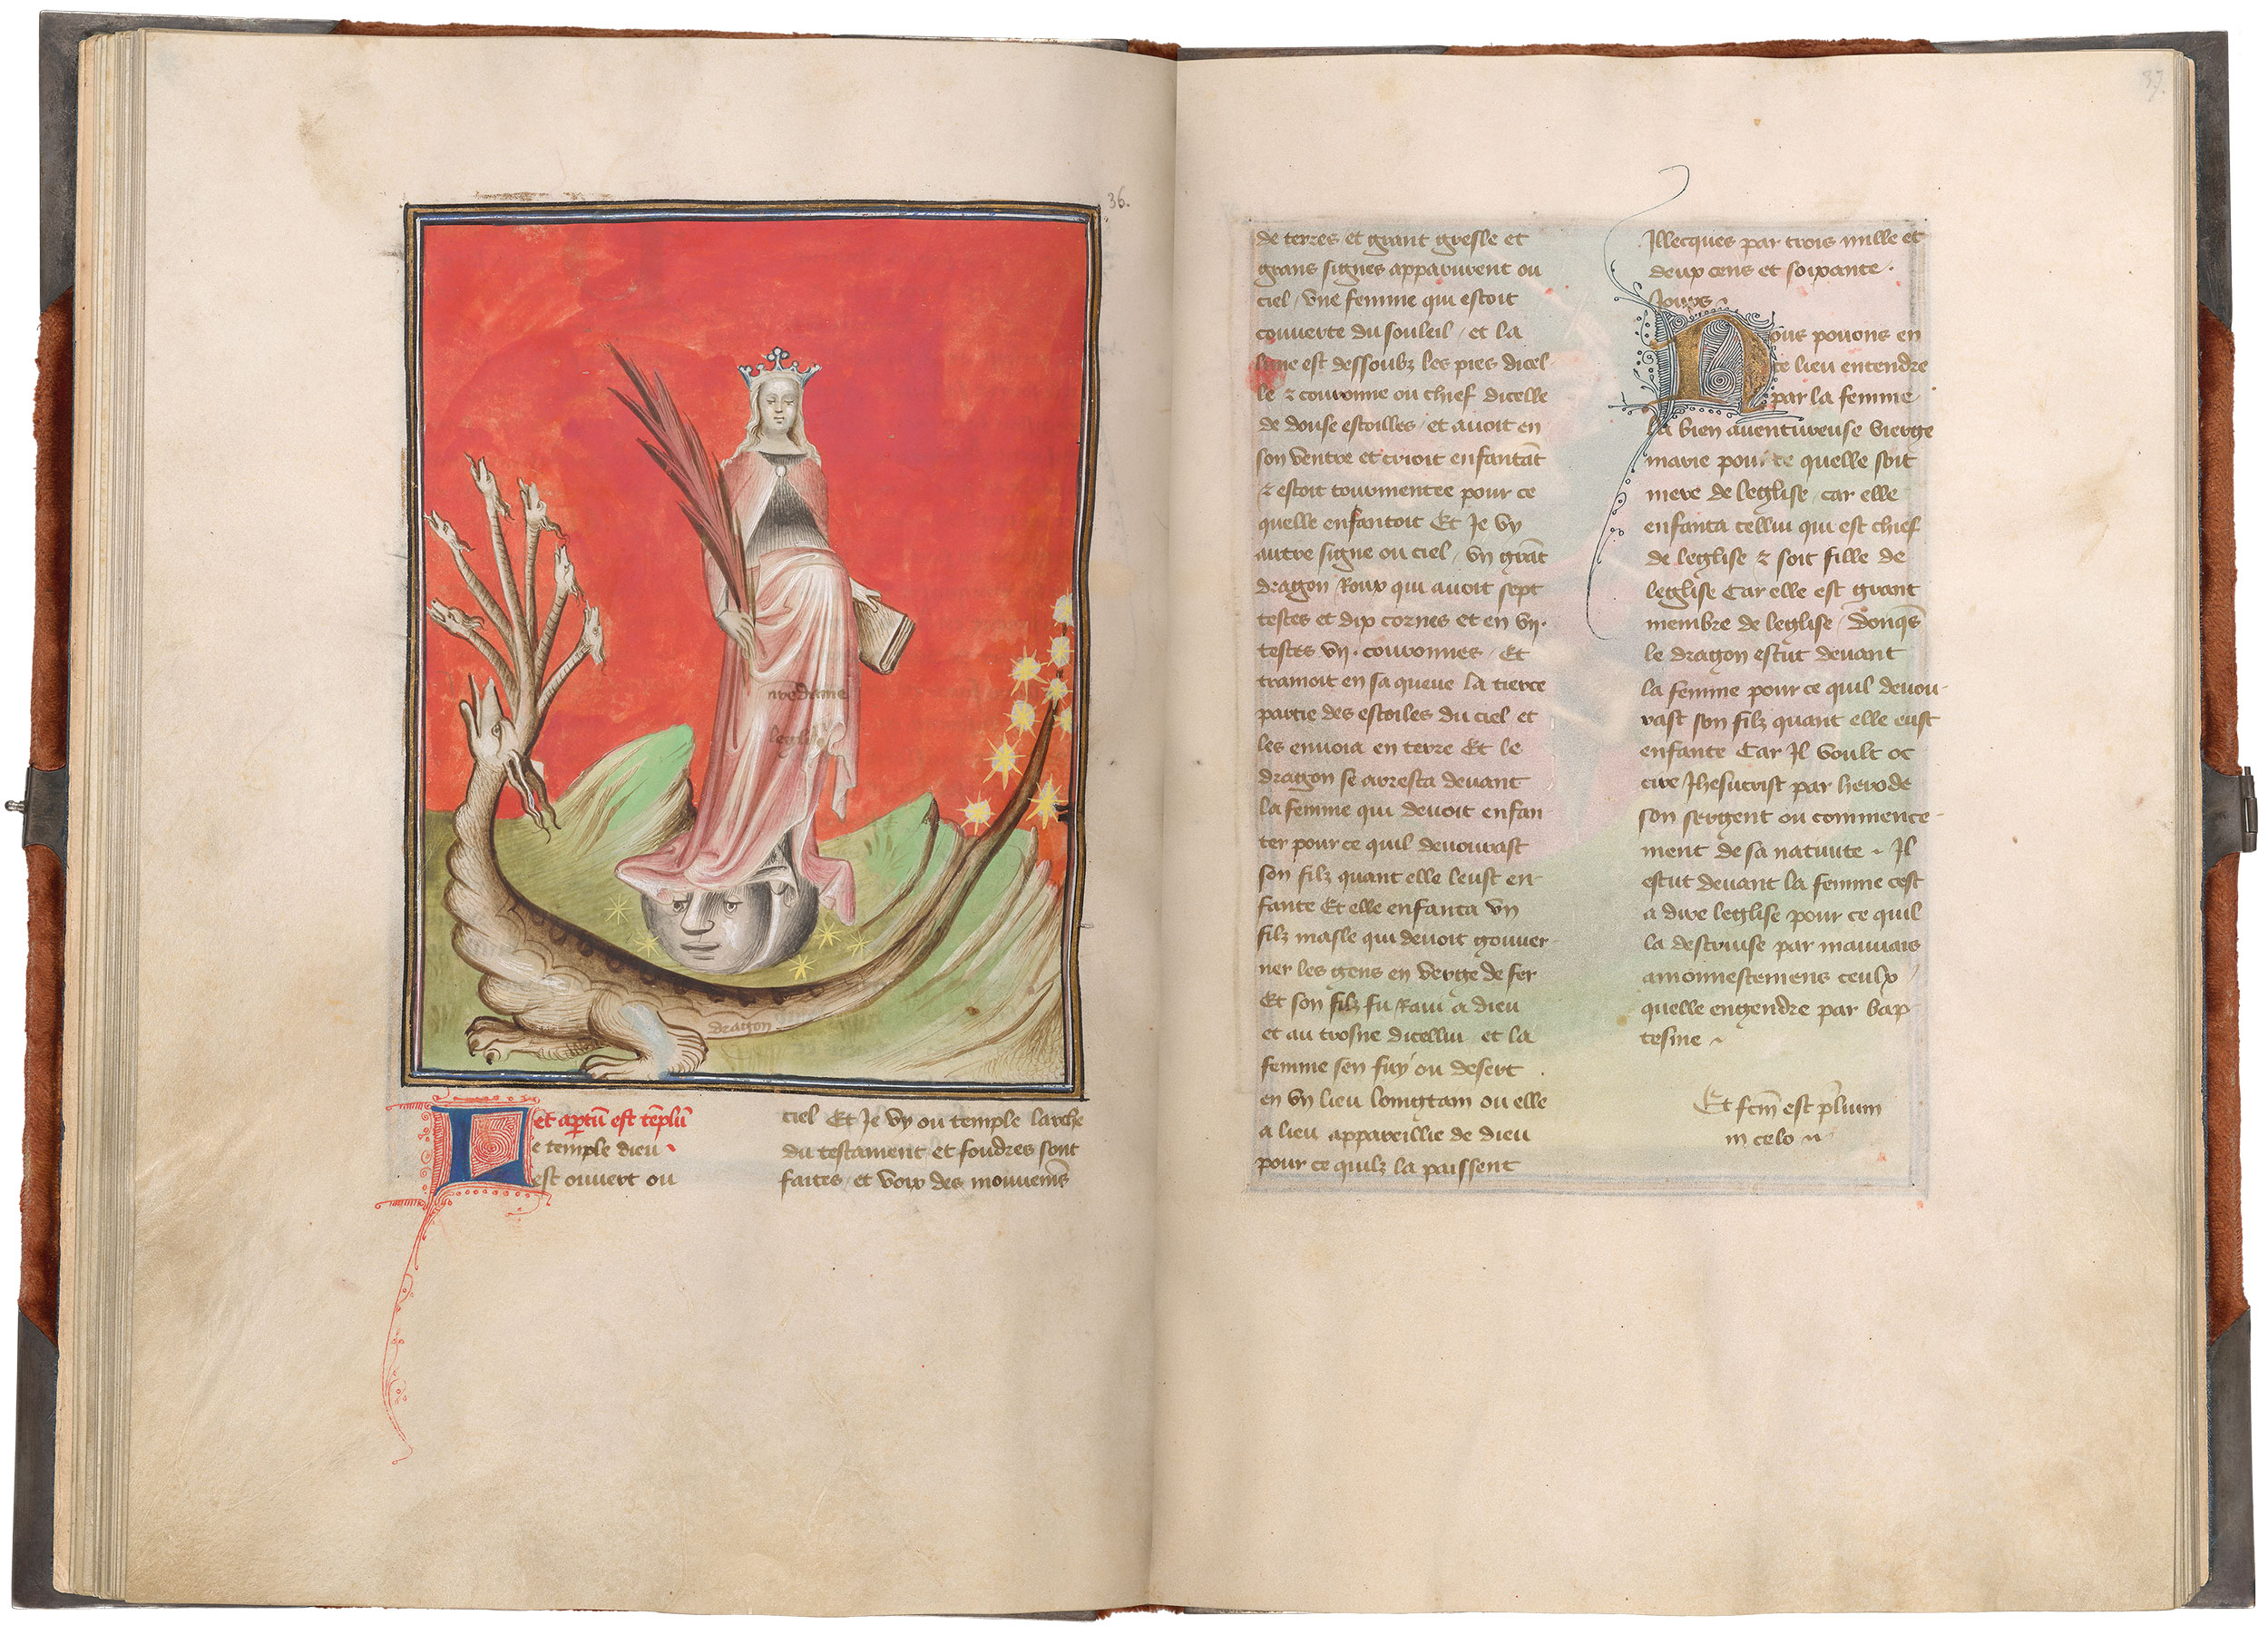 36.
nredame
leglise
dragon
et aꝑtū est tēplū
Le temple dieu
est ouuert ou
ciel Et Je vy ou temple larche
du testament et foudres sont
faites et voix des mouuemēs
37.
de terres et grant gresle et
grans signes apparurent ou
ciel / vne femme qui estoit
couuerte du souleil / et la
lune est dessoubz les pies dicel
le ⁊ couronne ou chief dicelle
de douse estoilles / et auoit en
son ventre et crioit enfantāt
⁊ estoit tourmentee pour ce
quelle enfantoit Et Je vy
autre signe ou ciel / vn grāt
dragon Roux qui auoit sept
testes et dix cornes et en vij.
testes vij. couronnes / Et
trainoit en sa queue la tierce
partie des estoiles du ciel et
les enuoia en terre Et le
dragon se arresta deuant
la femme qui deuoit enfan
ter pour ce quil deuourast
son filz quant elle leust en
fante Et elle enfanta vn
filz masle qui deuoit gouuer
ner les gens en verge de fer
Et son filz fu Raui a dieu
et au trosne dicellui et la
femme sen fuy ou desert .
en vn lieu loingtain ou elle
a lieu appareillie de dieu
pour ce quilz la paissent
Illecques par trois mille et
deux cens et soixante .
Jours
Nous pouons en
ce lieu entendre
par la femme
la bien auentureuse vierge
marie pour ce quelle soit
mere de leglise / car elle
enfanta cellui qui est chief
de leglise ⁊ soit fille de
leglise Car elle est grant
membre de leglise / Donqs̄
le dragon estut deuant
la femme pour ce quil deuou-
rast son filz quant elle eust
enfante Car Jl voult oc
cire Jhesucrist par herode
son sergent ou commence-
ment de sa natiuite Il
estut deuant la femme cest
a dire leglise pour ce quil
la destruise par mauuais
amonnestemens ceulx
quelle engendre par bap
tesme
Et fc̄m est p̄lium
in celo